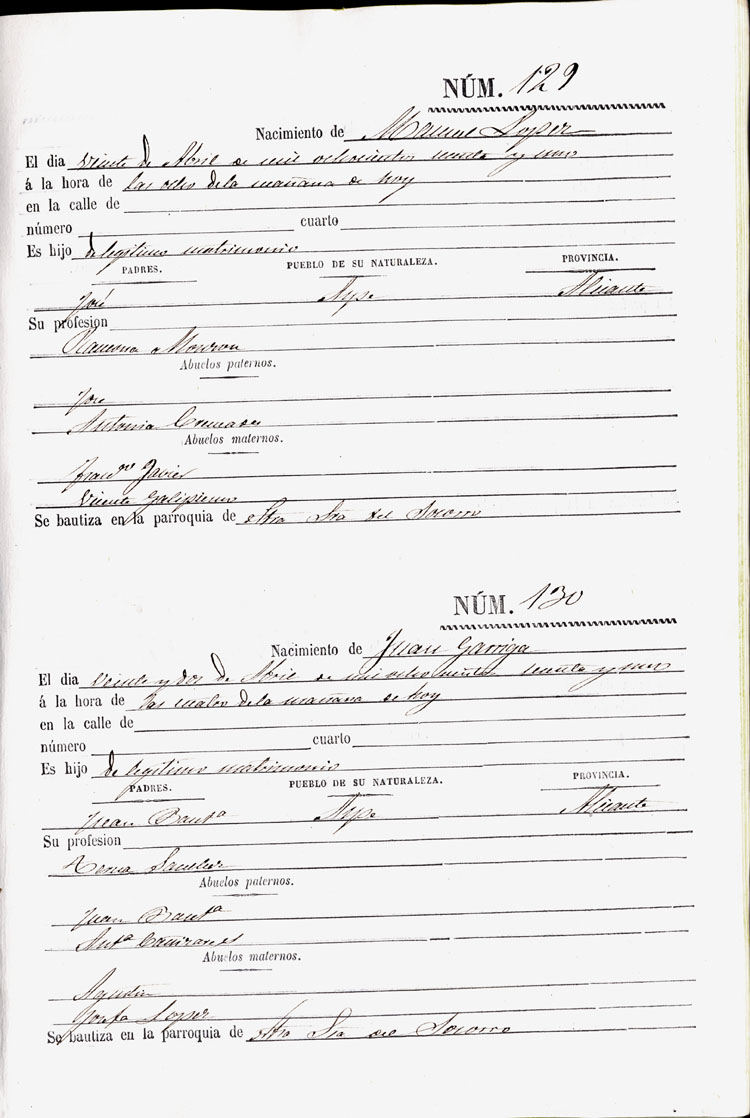 NÚM. 129
Nacimiento de Manuel Lopez
El dia Veinte de Abril de mil ochocientos y uno
á la hora de las ocho de la mañana de hoy
en la calle de
número cuarto
Es hijo de legitimo matrimonio
PADRES. PUEBLO DE SU NATURALEZA. PROVINCIA.
José Aspe Alicante
Su profesion
Ramona
Abuelos paternos.
Jose
Antonia Cremades
Abuelos maternos.
Franco Javier
Vicenta Galipienso
Se bautiza en la parroquia de Ntra Sra del Socorro
NÚM. 130
Nacimiento de Juan Garriga
El dia Veinte y dos de Abril de mil ochocientos y uno
á la hora de las cuatro de la mañana de hoy
en la calle de
número cuarto
Es hijo de legitimo matrimonio
PADRES. PUEBLO DE SU NATURALEZA. PROVINCIA.
Juan Bauta Aspe Alicante
Su profesion
Teresa Sanchez
Abuelos paternos.
Juan Bauta
Anta Cañizares
Abuelos maternos.
Agustin
Josefa Lopez
Se bautiza en la parroquia de Ntra Sra del Socorro